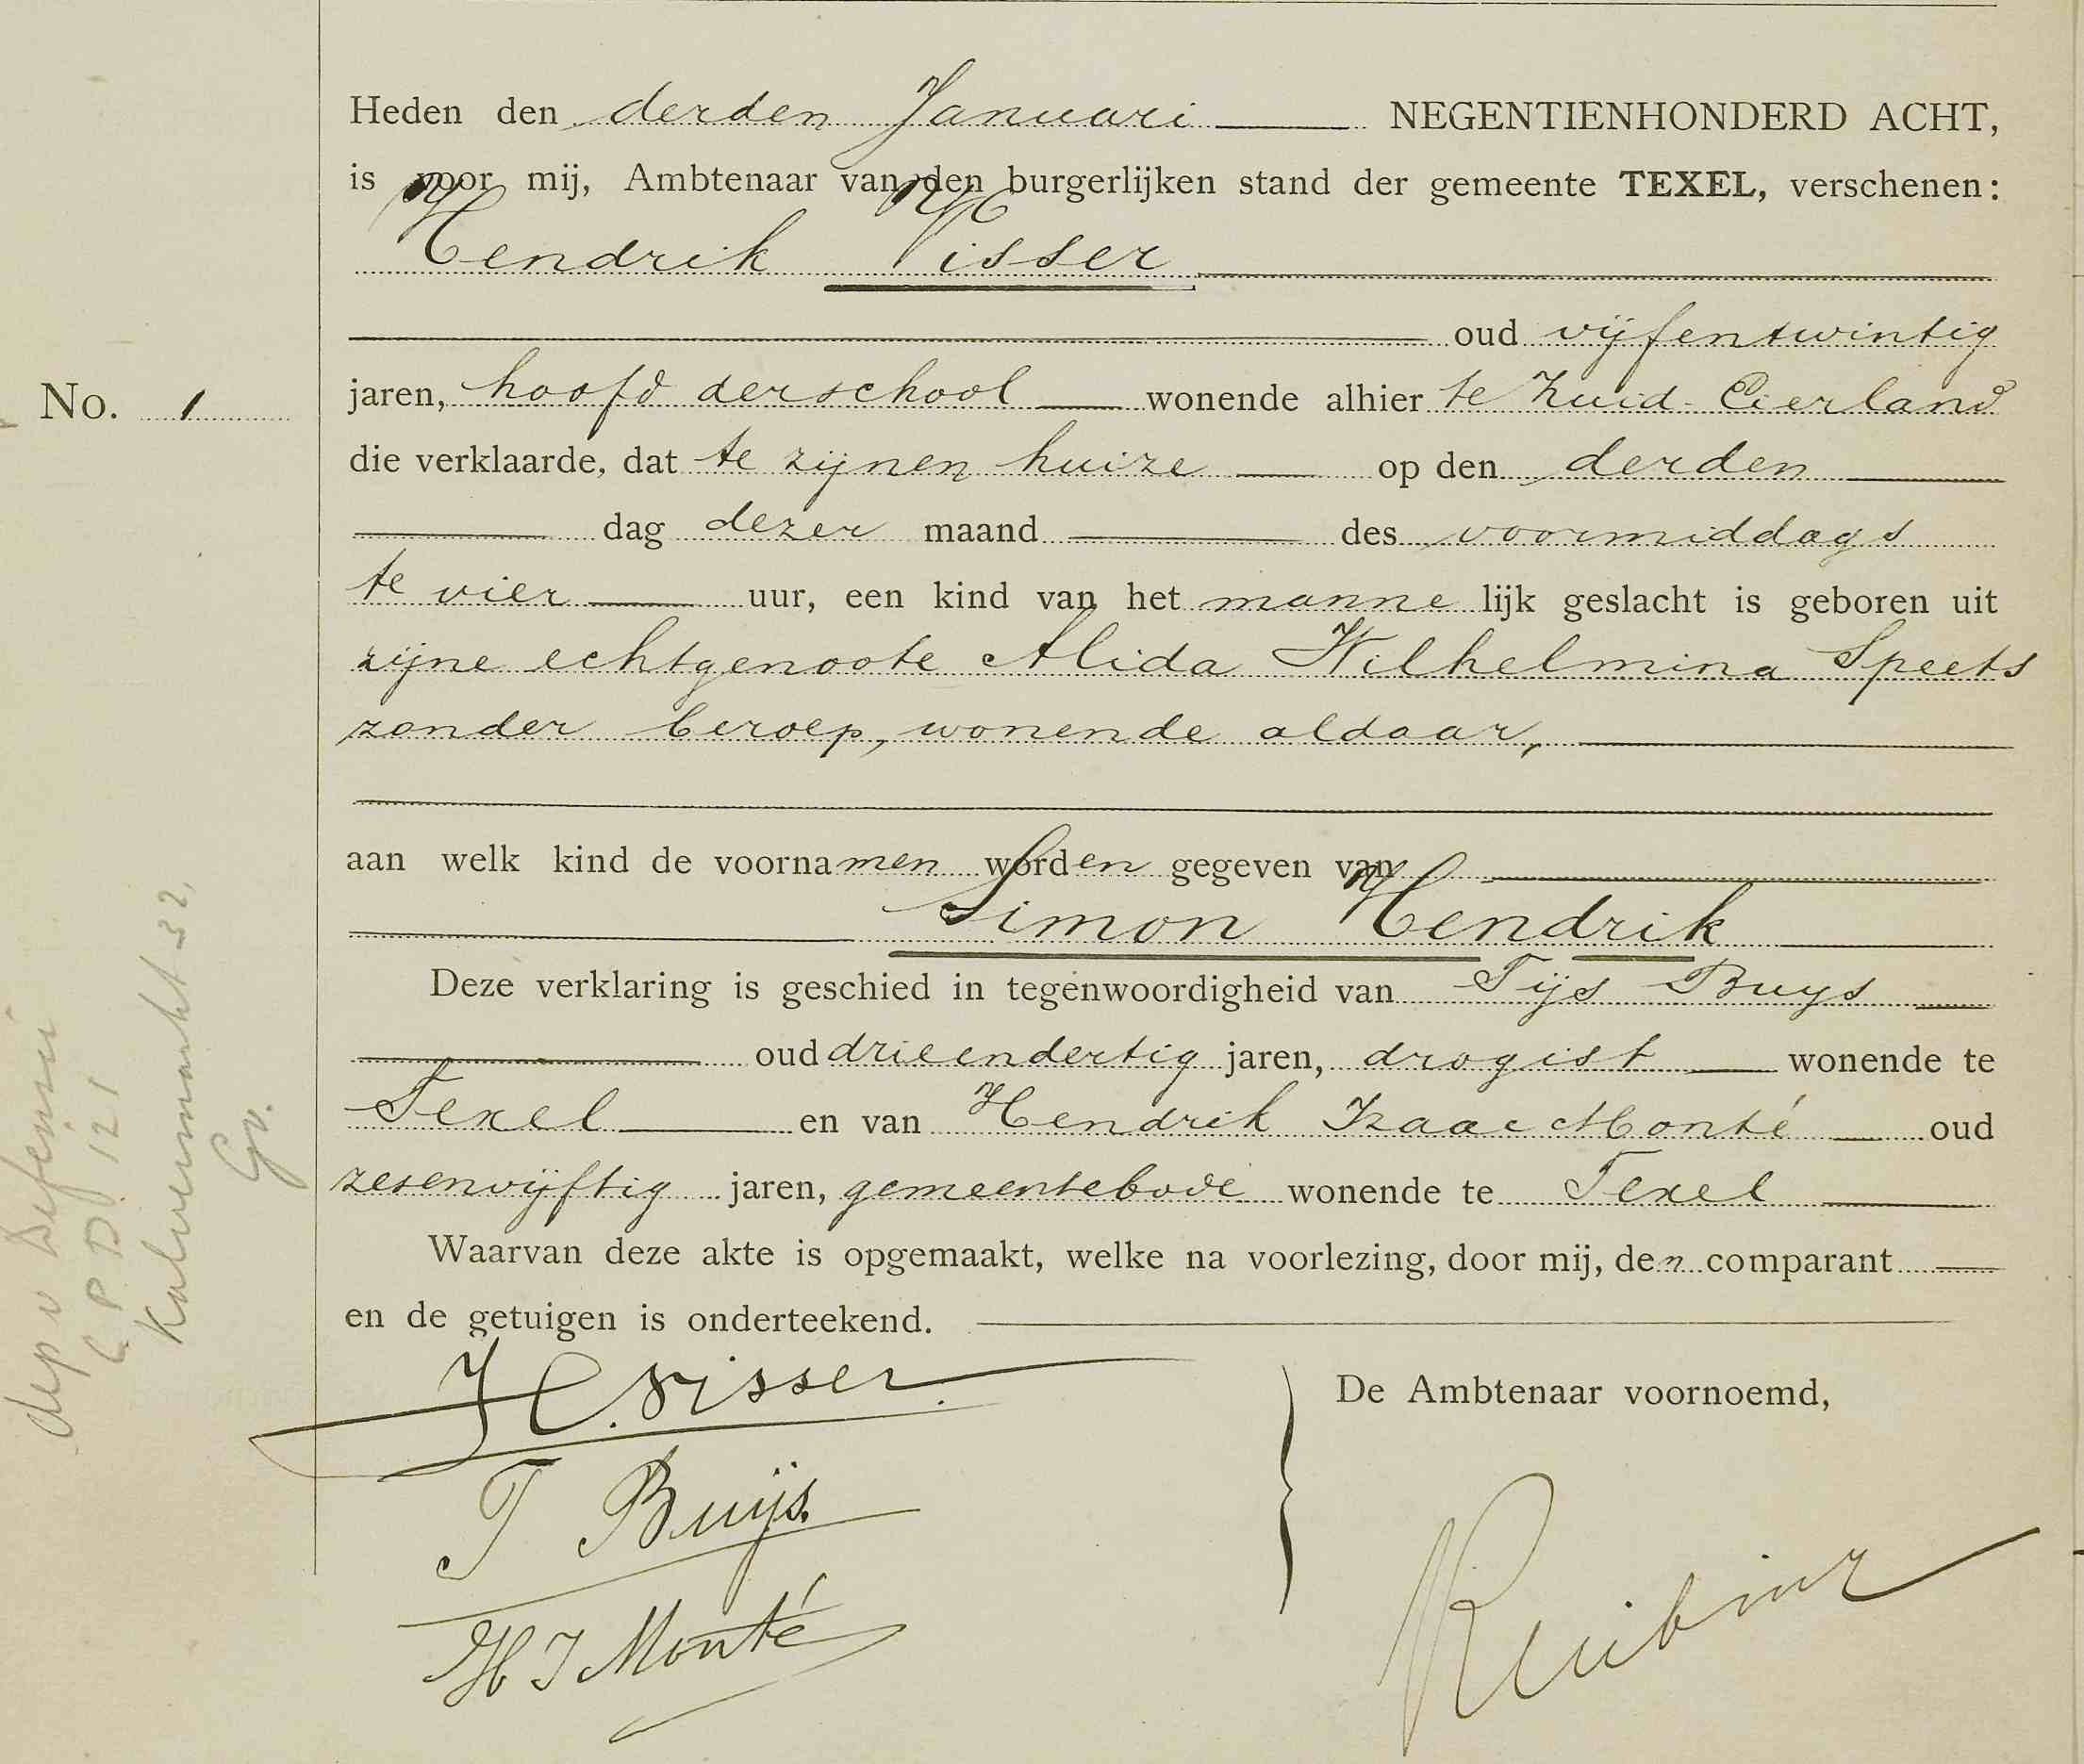 Heden den derden Januari NEGENTIENHONDERD ACHT,
is voor mij, Ambtenaar van den burgerlijken stand der gemeente TEXEL, verschenen:
Hendrik Visser
oud vijfentwintig
No. 1
jaren, hoofd der school wonende alhier te Zuid-Eierland
die verklaarde, dat te zijnen huize op den derden
dag dezer maand des voormiddags
te vier uur, een kind van het mannelijk geslacht is geboren uit
zijne echtgenoote Alida Wilhelmina Speets
zonder beroep, wonende aldaar,
aan welk kind de voornamen worden gegeven van
Simon Hendrik
Deze verklaring is geschied in tegenwoordigheid van Tijs Buys
oud drieendertig jaren, drogist wonende te
Texel en van Hendrik Izaac Monté oud
zesenvijftig jaren, gemeentebode wonende te Texel
Waarvan deze akte is opgemaakt, welke na voorlezing, door mij, den comparant
en de getuigen is onderteekend.
H. Visser.
De Ambtenaar voornoemd,
T Buijs.
H I Monté
dep v Defensie
C P D 121
Kalvermarkt 32,
Gv.